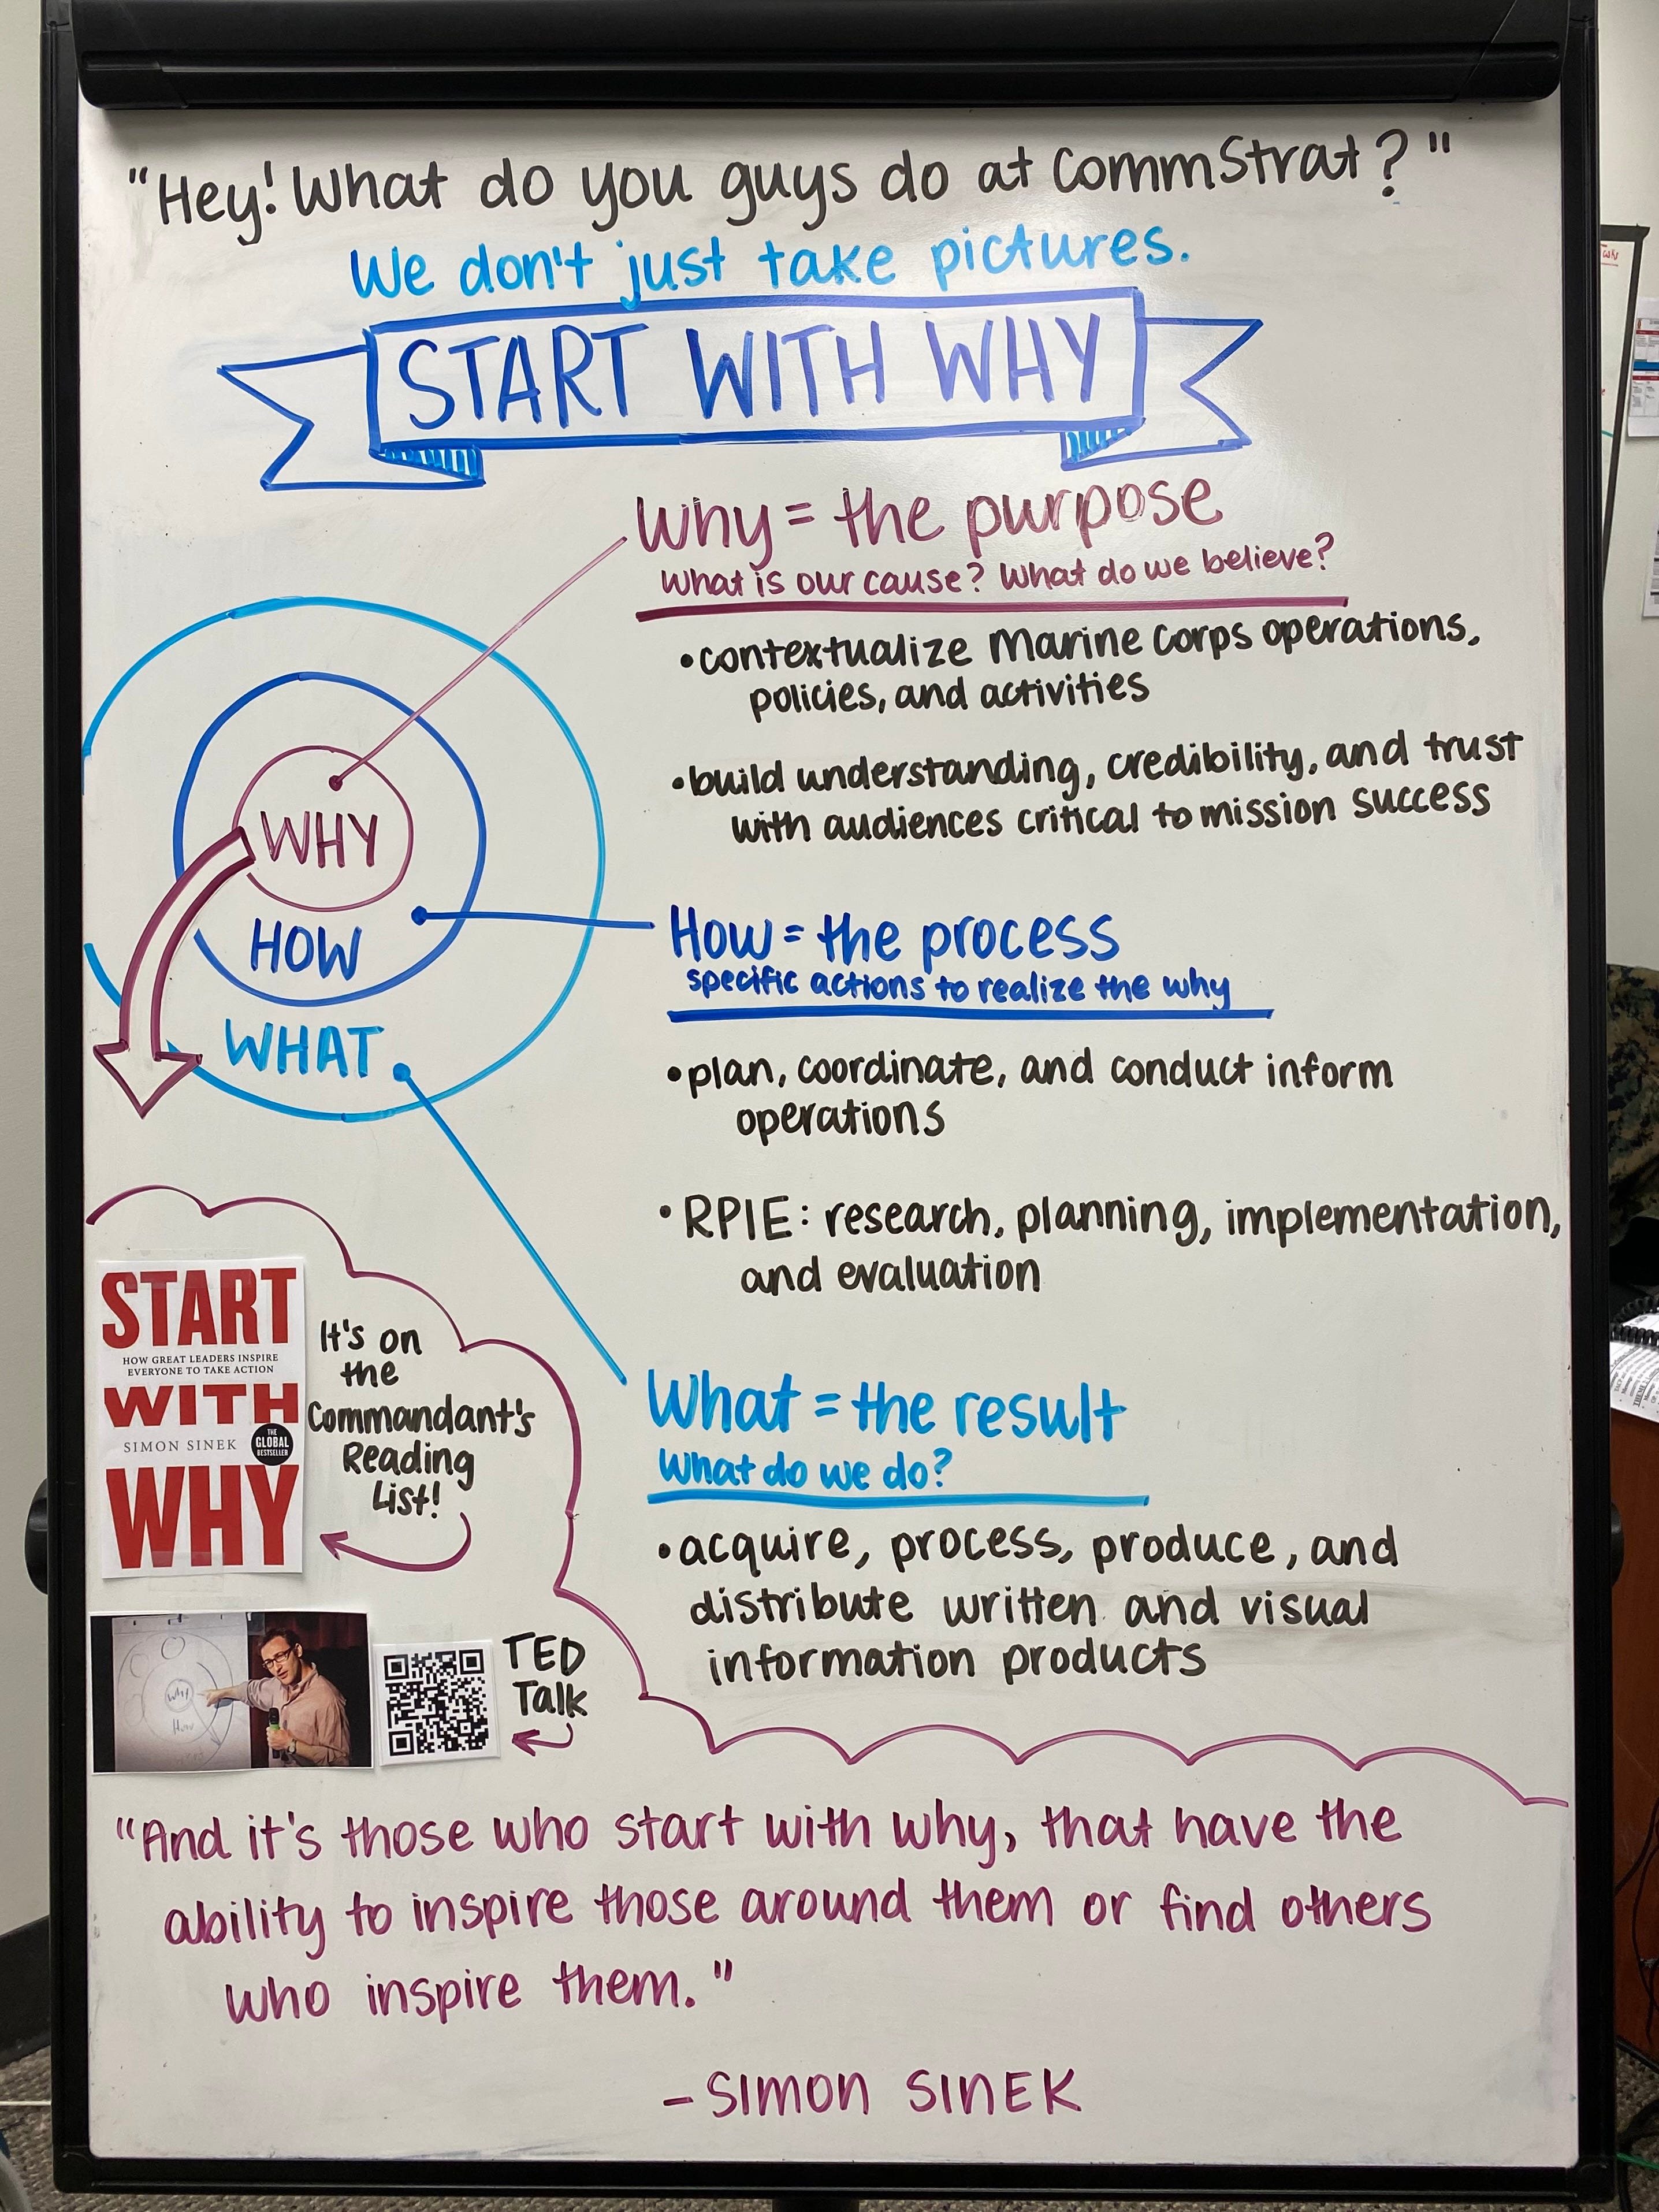 "Hey! What do you guys do at CommStrat?"
We don't just take pictures.
START WITH WHY
Why = the purpose
What is our cause? What do we believe?
•contextualize Marine Corps operations,
policies, and activities
•build understanding, credibility, and trust
with audiences critical to mission success
WHY
HOW
WHAT
How = the process
specific actions to realize the why
•plan, coordinate, and conduct inform
operations
•RPIE: research, planning, implementation,
and evaluation
START
HOW GREAT LEADERS INSPIRE
EVERYONE TO TAKE ACTION
WITH
SIMON SINEK
THE
GLOBAL
BESTSELLER
WHY
It's on
the
Commandant's
Reading
List!
What = the result
What do we do?
•acquire, process, produce, and
distribute written and visual
information products
WHY
HOW
TED
Talk
"And it's those who start with why, that have the
ability to inspire those around them or find others
who inspire them."
-SIMON SINEK